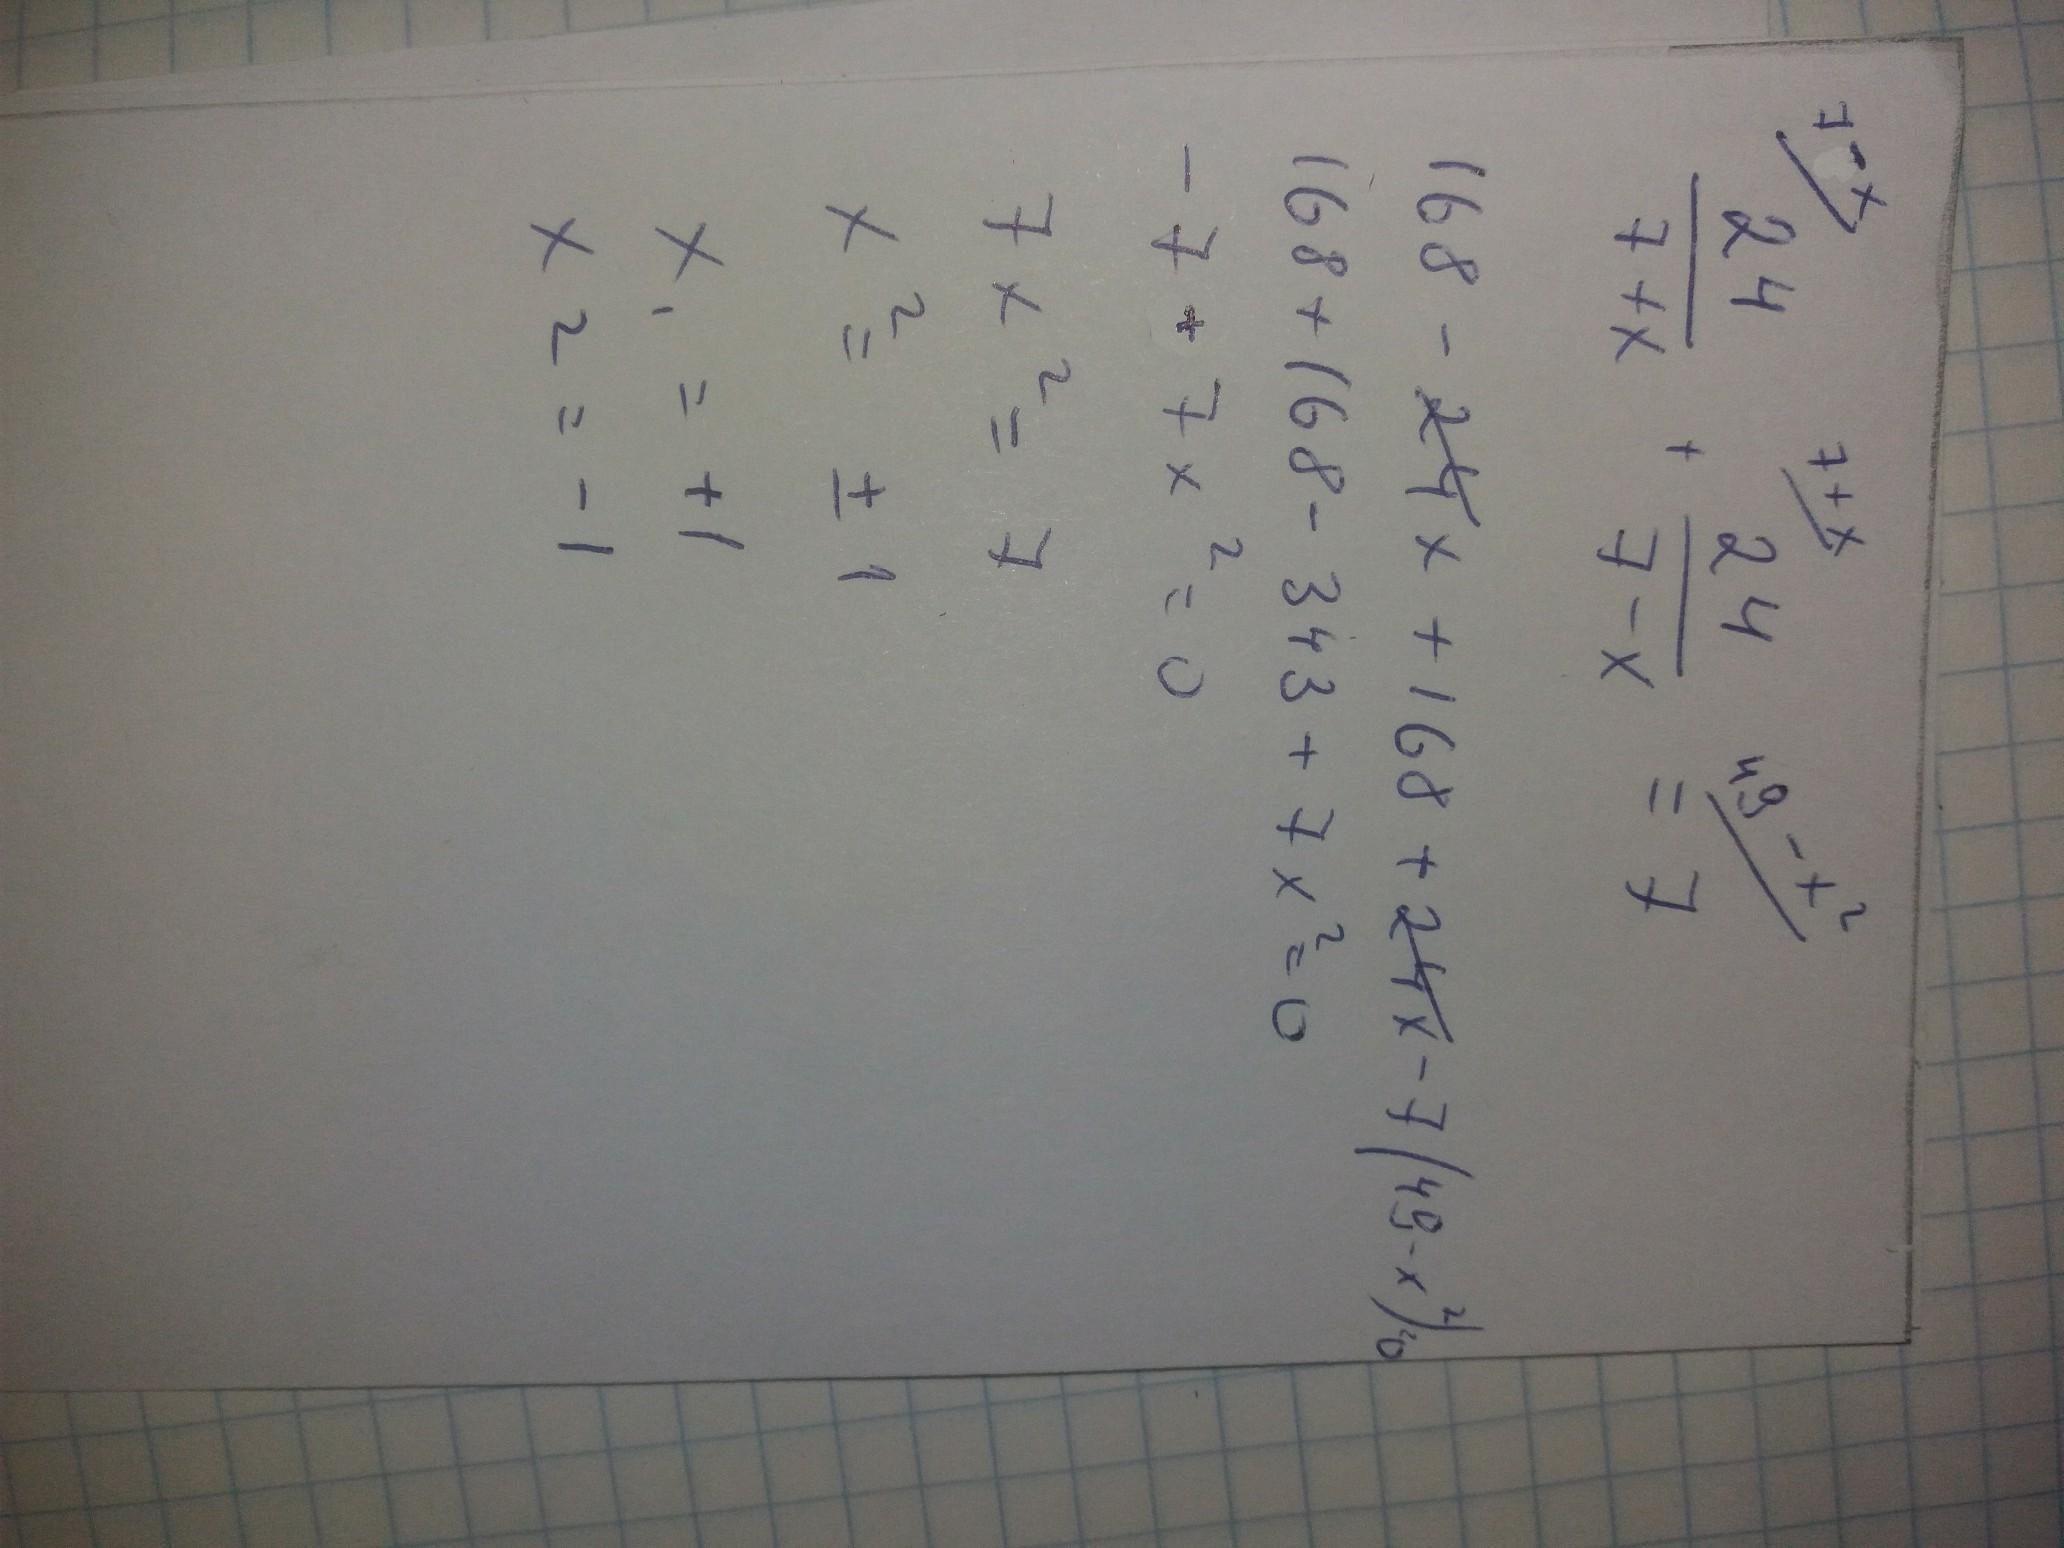 7-x 7+x 49-x²
24/7+x + 24/7-x = 7
168-24x+168+24x-7(49-x²)=0
168+168-343+7x²=0
-7+7x²=0
7x²=7
x²=±1
x₁=+1
x2=-1